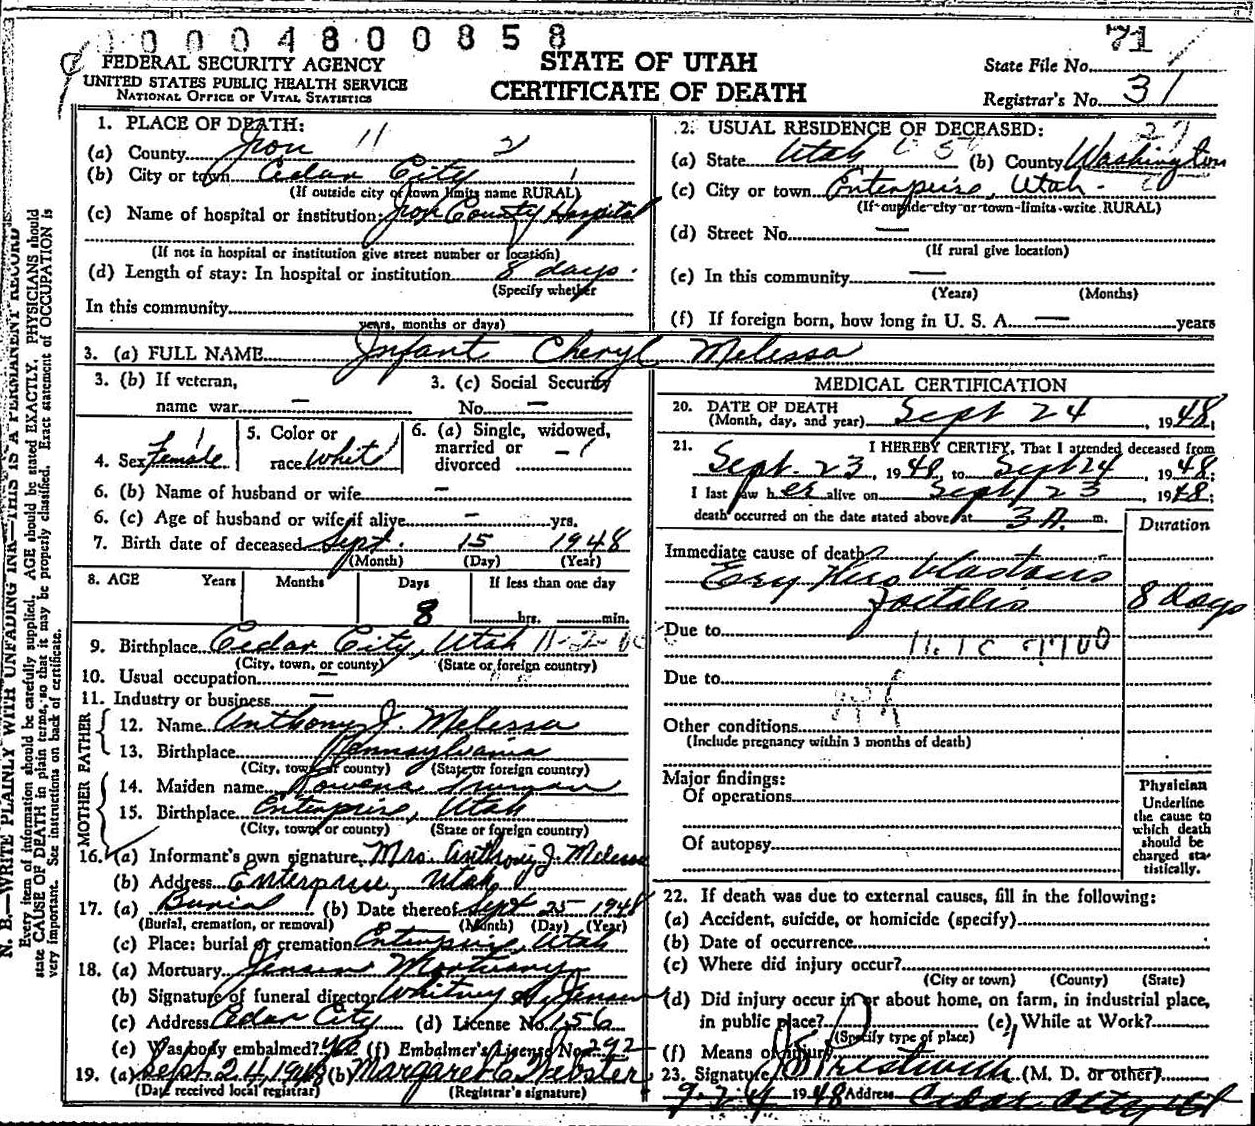 10004800858
71
FEDERAL SECURITY AGENCY
UNITED STATES PUBLIC HEALTH SERVICE
NATIONAL OFFICE OF VITAL STATISTICS
STATE OF UTAH
CERTIFICATE OF DEATH
State File No.
Registrar's No. 31
N. B.—WRITE PLAINLY WITH UNFADING INK—THIS IS A PERMANENT RECORD
Every item of information should be carefully supplied. AGE should be stated EXACTLY. PHYSICIANS should
state CAUSE OF DEATH in plain terms, so that it may be properly classified. Exact statement of OCCUPATION is
very important. See instructions on back of certificate.
1. PLACE OF DEATH:
(a) County Iron 11 2
(b) City or town Cedar City 1
(If outside city or town limits name RURAL)
(c) Name of hospital or institution: Iron County Hospital
(If not in hospital or institution give street number or location)
(d) Length of stay: In hospital or institution 8 days.
(Specify whether
In this community
years, months or days)
2. USUAL RESIDENCE OF DECEASED: 27
(a) State Utah (b) County Washington
(c) City or town Enterprise, Utah.
(If outside city or town limits write RURAL)
(d) Street No. —
(If rural give location)
(e) In this community —
(Years) (Months)
(f) If foreign born, how long in U. S. A. — years
3. (a) FULL NAME Infant Cheryl Melissa
3. (b) If veteran,
name war –
3. (c) Social Security
No. –
4. Sex Female 1
5. Color or
race White 1
6. (a) Single, widowed,
married or
divorced – 1
6. (b) Name of husband or wife –
6. (c) Age of husband or wife if alive – yrs.
7. Birth date of deceased Sept. 15 1948
(Month) (Day) (Year)
8. AGE Years Months Days If less than one day
8 hrs. min.
9. Birthplace Cedar City, Utah
(City, town, or county) (State or foreign country)
10. Usual occupation –
11. Industry or business –
FATHER
12. Name Anthony J. Melissa
13. Birthplace Pennsylvania
(City, town or county) (State or foreign country)
MOTHER
14. Maiden name Rowena Truman
15. Birthplace Enterprise, Utah
(City, town or county) (State or foreign country)
16. (a) Informant's own signature Mrs. Anthony J. Melissa
(b) Address Enterprise, Utah
17. (a) Burial (b) Date thereof Sept 25 1948
(Burial, cremation, or removal) (Month) (Day) (Year)
(c) Place: burial or cremation Enterprise, Utah
18. (a) Mortuary Jensen Mortuary
(b) Signature of funeral director Whitney W. Jensen
(c) Address Cedar City (d) License No. 156
(e) Was body embalmed? (f) Embalmer's License No. 292
19. (a) Sept 24, 1948 (b) Margaret C Webster
(Date received local registrar) (Registrar's signature)
MEDICAL CERTIFICATION
20. DATE OF DEATH
(Month, day, and year) Sept 24, 1948;
21. I HEREBY CERTIFY, That I attended deceased from
Sept. 23, 1948, to Sept 24, 1948;
I last saw her alive on Sept 23, 1948;
death occurred on the date stated above, at 3 A. m.
Duration
Immediate cause of death
Erythroblastosis
foetalis 8 days
Due to
Due to
Rh
Other conditions
(Include pregnancy within 3 months of death)
Major findings:
Of operations
Of autopsy
Physician
Underline
the cause to
which death
should be
charged sta-
tistically.
22. If death was due to external causes, fill in the following:
(a) Accident, suicide, or homicide (specify)
(b) Date of occurrence
(c) Where did injury occur?
(City or town) (County) (State)
(d) Did injury occur in or about home, on farm, in industrial place,
in public place? (e) While at Work?
(Specify type of place)
(f) Means of injury
23. Signature Prestwich (M. D. or other)
9-24 1948 Address Cedar City Ut